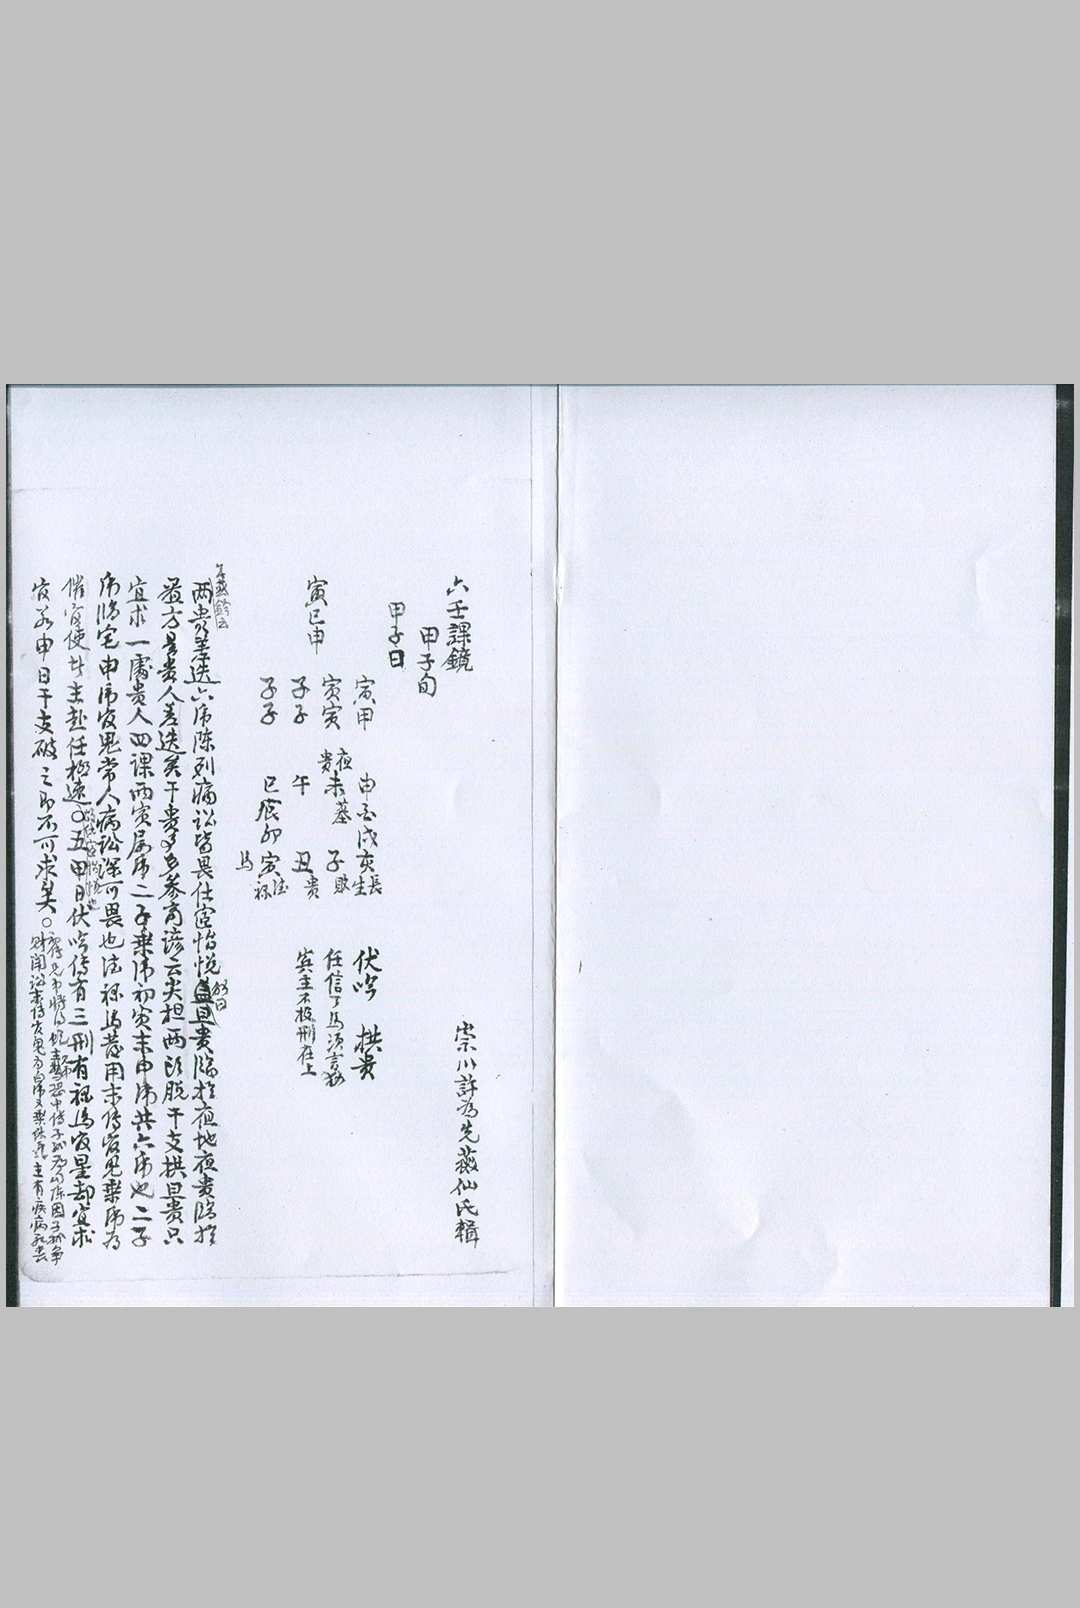 六壬課鏡
崇川許為先薇仙氏輯
甲子旬
甲子日
寅甲
寅寅
子子
子子
寅巳申
申酉戌亥長生
夜貴未墓 子敗
午 丑貴
巳辰卯寅法祿
馬
伏吟 拱貴
任信丁馬須言動
賓主不投刑在上
兩貴差迭六虎陳列病訟皆畏仕宦怡悅 旦貴臨於夜地夜貴臨於
旦方是貴人差迭矣干貴事多參商諺云尖担兩頭脫干支拱旦貴只
宜求一處貴人四課兩寅屬虎二子乘虎初寅末申虎共六虎也二子
虎臨宅申虎官鬼常人病訟深可畏也法祿馬發用末傳官鬼乘虎為
催官使者主赴任極速○五甲日伏吟傳有三刑有祿馬官星却宜求
官若申日干支破之即不可求矣○